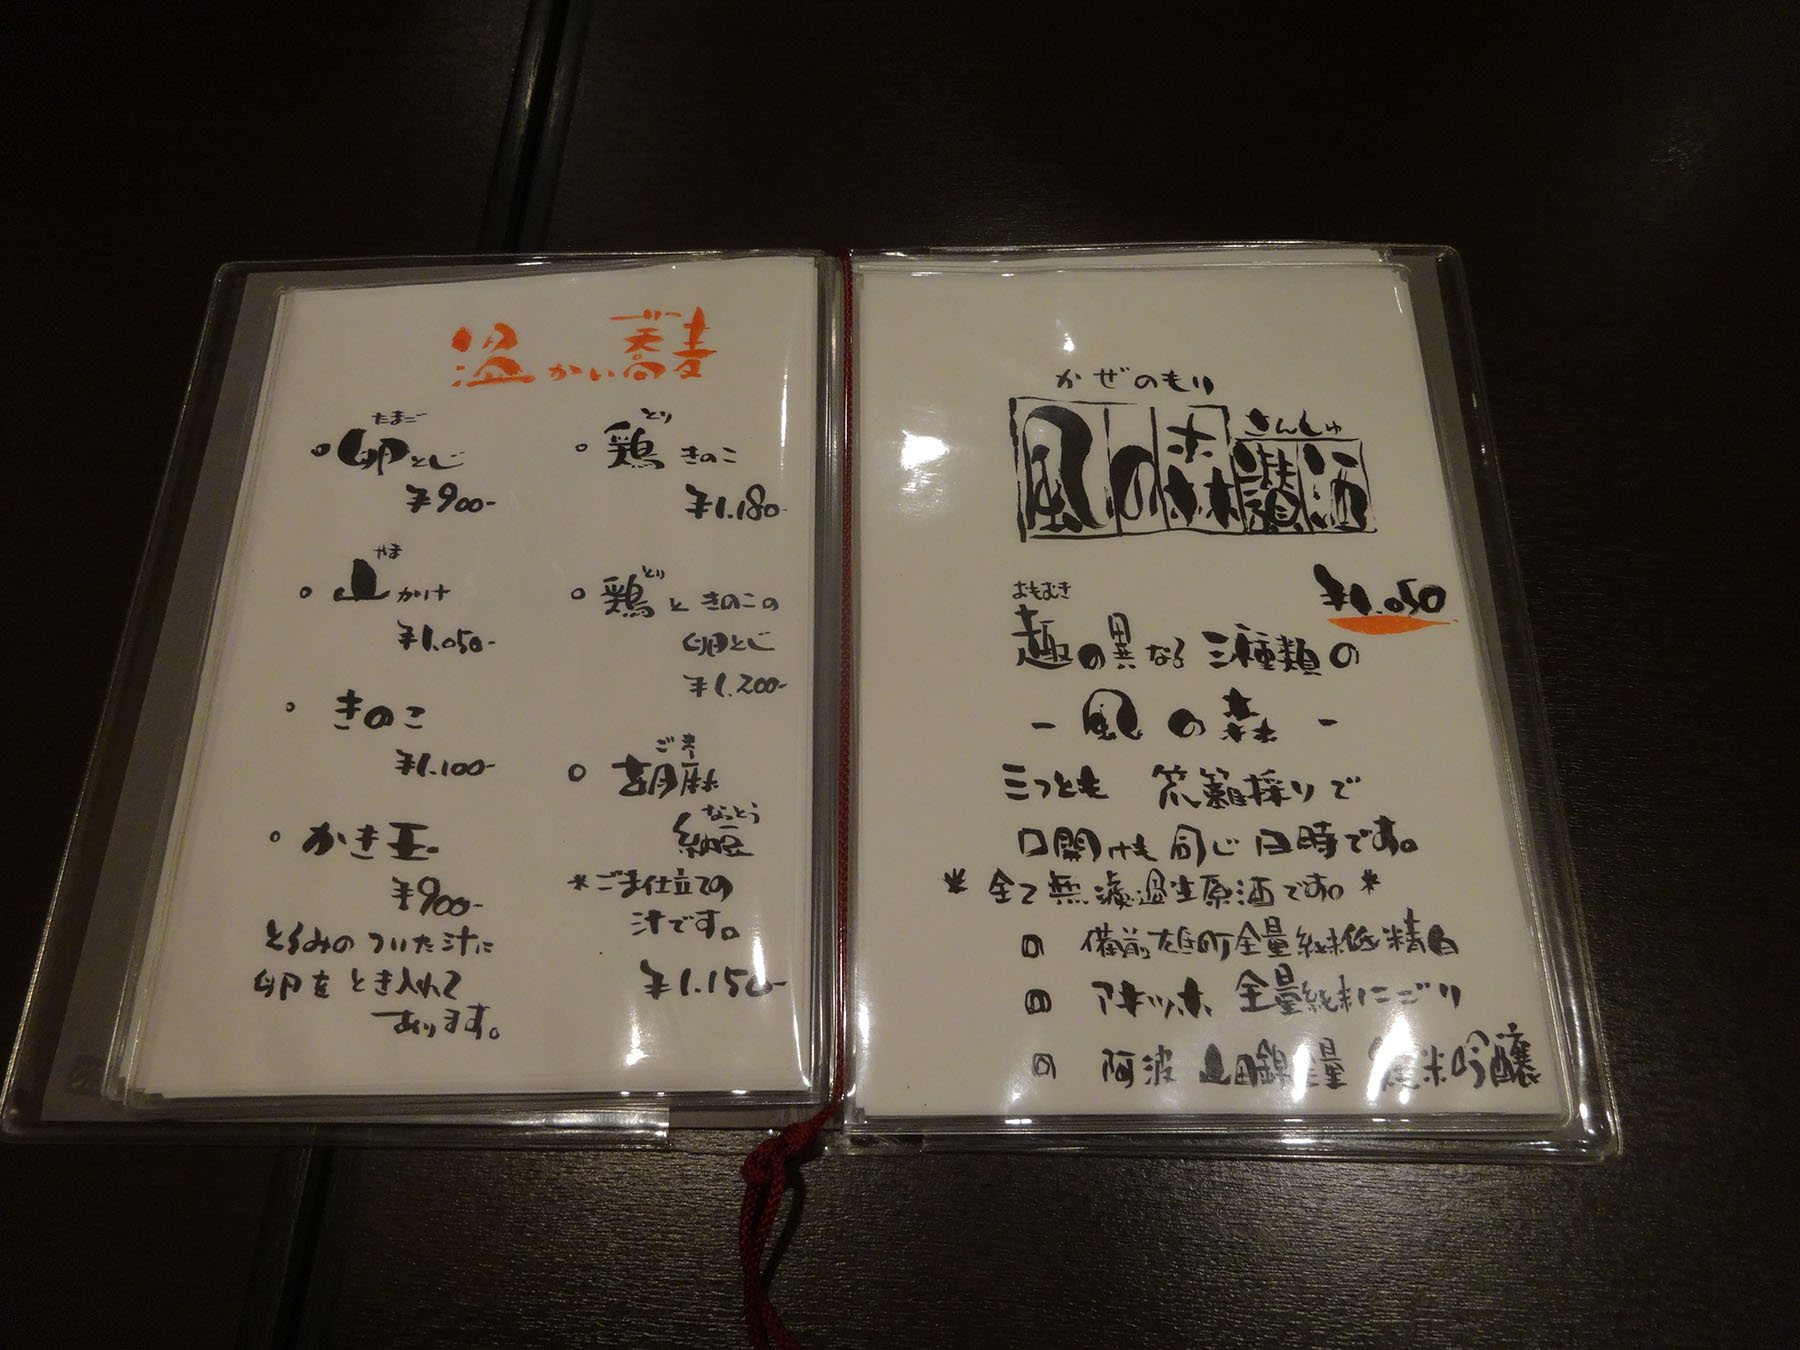 温かい蕎麦
たまご
卵とじ
¥900-
やま
山かけ
¥1.050-
きのこ
¥1.100-
かき玉
¥900-
とろみのついた汁に
卵をとき入れて
あります。
とり
鶏きのこ
¥1.180-
とり
鶏ときのこの
卵とじ
¥1.200-
ごま
胡麻
なっとう
納豆
*ごま仕立ての
汁です。
¥1.150-
かぜのもり
さんしゅ
風の森讃酒
¥1.050
おもむき
趣の異なる三種類の
- 風の森 -
三つとも 笊籬採りで
口開けも同じ日時です。
* 全て無濾過生原酒です。*
備前雄町全量純米低精白
アキツホ 全量純米にごり
阿波 山田錦全量 純米吟醸